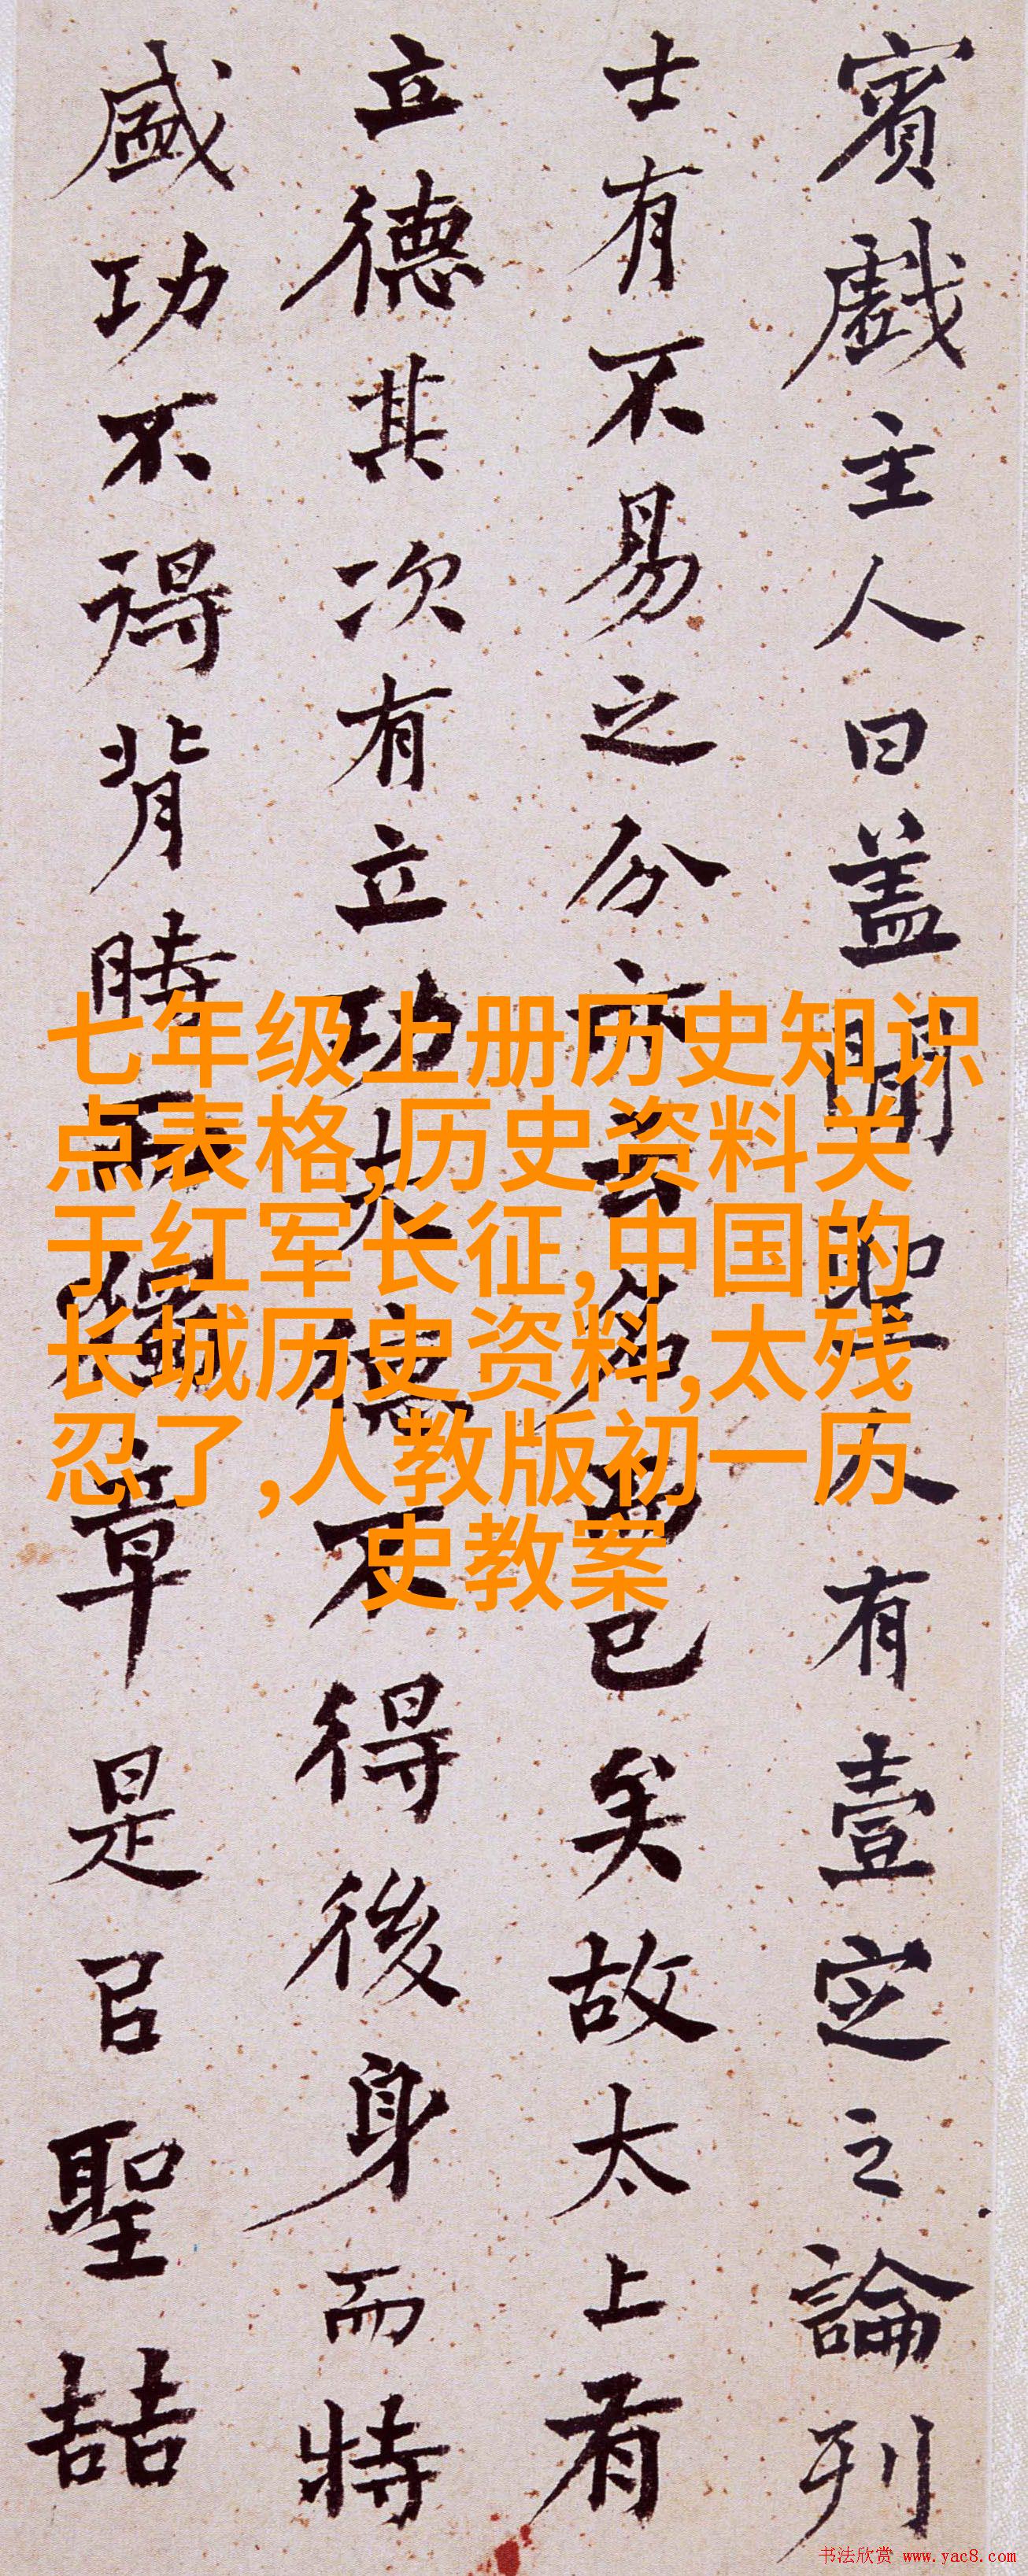 賓戲主人曰盖聞聖人有壹定之論列
士有不易之分亦云名而已矣故太上有
立德其次有立功夫德不得後身而特
盛功不得背時而獨章是㠯聖喆
七年级上册历史知识
点表格,历史资料关
于红军长征,中国的
长城历史资料,太残
忍了,人教版初一历
史教案
书法欣赏 www.yac8.com